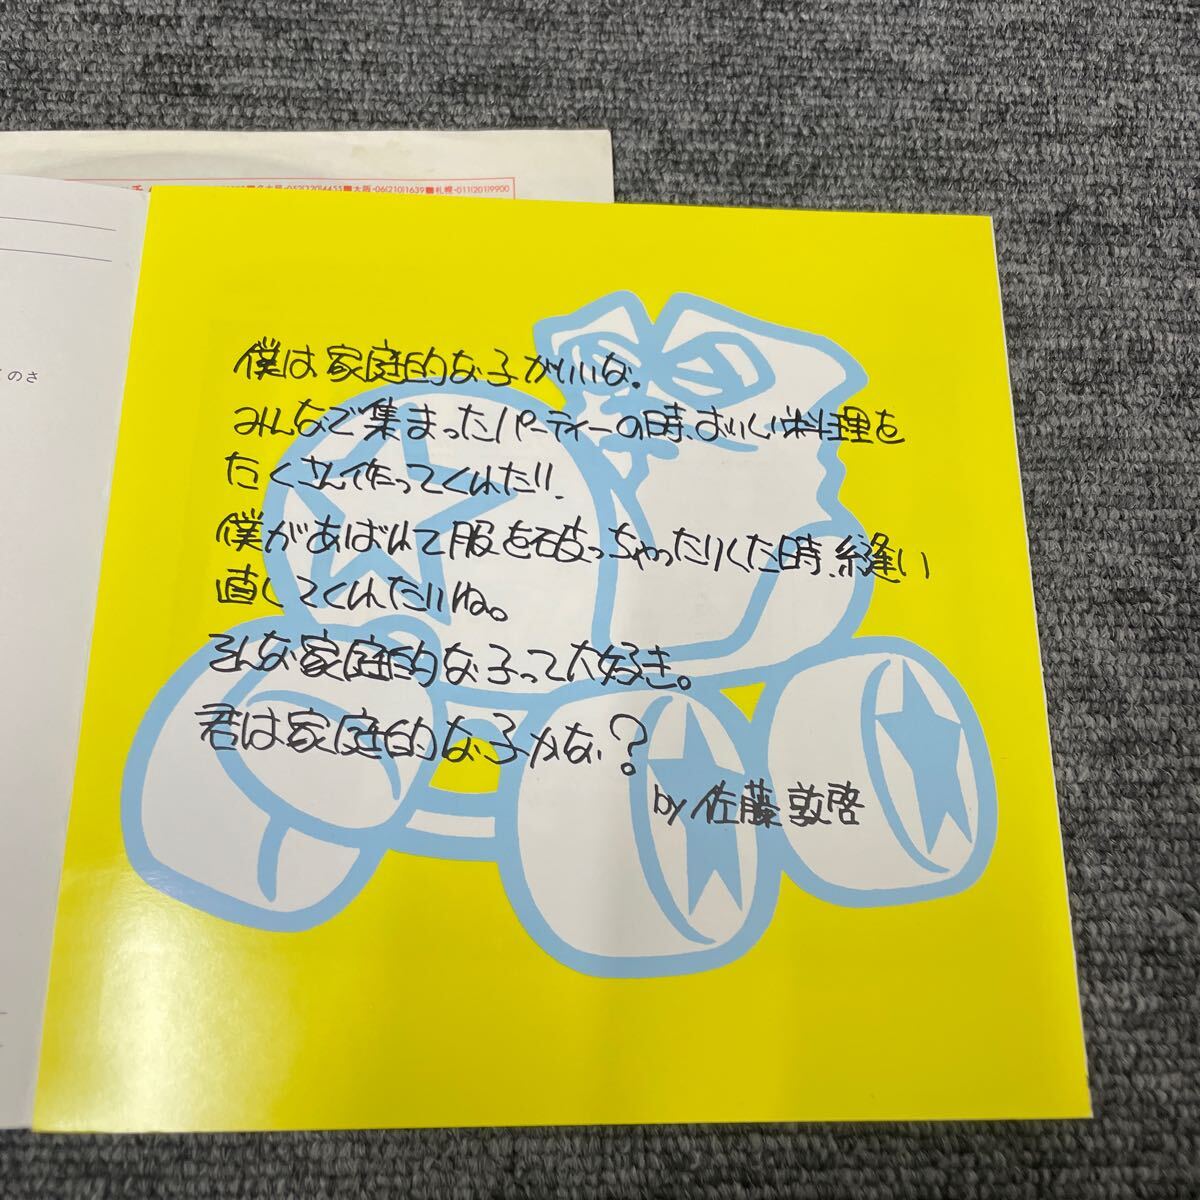 052(120)4455■大阪・06(210)1639■札幌・011(201)9900
のさ
僕は家庭的な子がいいな。
みんなで集まったパーティーの時、おいしい料理を
たくさん作ってくれたり、
僕があばれて服を破っちゃったりした時、縫い
直してくれたりね。
そんな家庭的な子って大好き。
君は家庭的な子かな?
by 佐藤敦啓